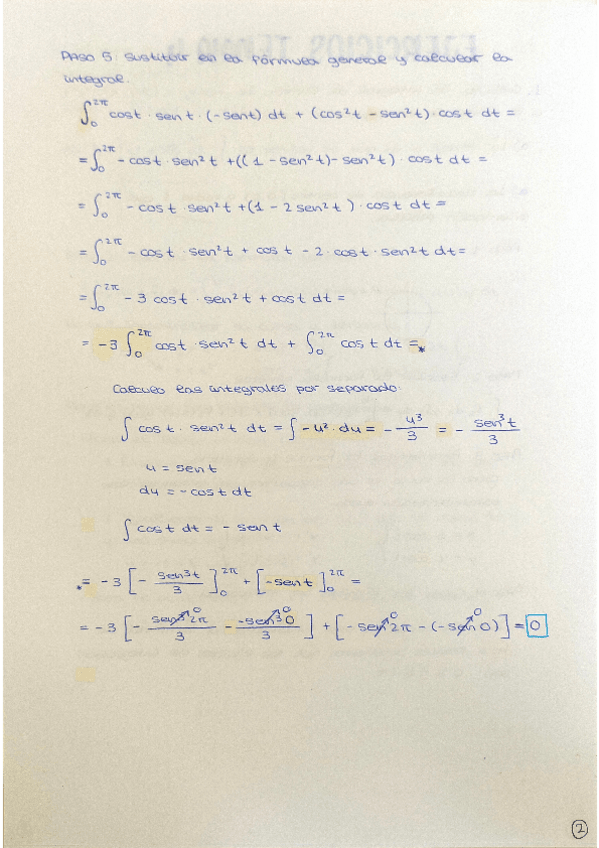 PASO 5. Sustituir en la fórmula general y calcular la
integral.
∫₀^2π cost · sen t · (-sent) dt + (cos²t - sen²t) · cost dt =
= ∫₀^2π - cost · sen²t + ((1 - sen²t) - sen²t) · cost dt =
= ∫₀^2π - cos t · sen²t + (1 - 2 sen²t) · cost dt =
= ∫₀^2π - cos t · sen²t + cos t - 2 · cost · sen²t dt =
= ∫₀^2π - 3 cost · sen²t + cost dt =
= -3 ∫₀^2π cost · sen²t dt + ∫₀^2π cos t dt =*
Calculo las integrales por separado:
∫ cos t · sen²t dt = ∫ -u² · du = - u³/3 = - sen³t/3
u = sen t
du = - cos t dt
∫ cos t dt = - sen t
*= -3 [- sen³t/3]₀^2π + [-sen t]₀^2π =
= -3 [- sen³2π/3 - -sen³0/3] + [- sen 2π - (-sen 0)] = 0
0 0 0 0
2